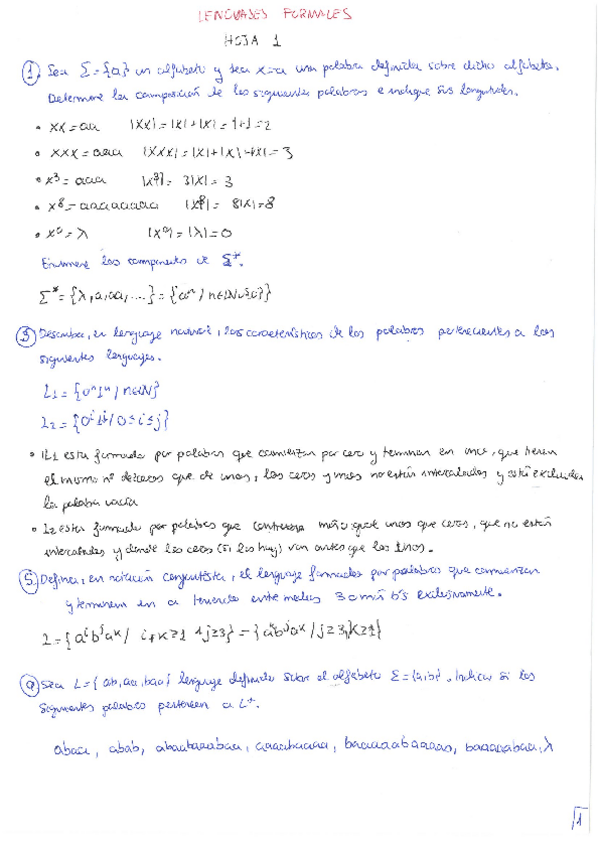 LENGUAJES FORMALES
HOJA 1
① Sea Σ={a} un alfabeto y sea x=a una palabra definida sobre dicho alfabeto.
Determine la composición de las siguientes palabras e indique sus longitudes.
• xx=aa |xx|=|x|+|x|=1+1=2
• xxx=aaa |xxx|=|x|+|x|+|x|=3
• x³=aaa |x³|=3|x|=3
• x⁸=aaaaaaaa |x⁸|=8|x|=8
• x⁰=λ |x⁰|=|λ|=0
Enumere los componentes de Σ*.
Σ*={λ,a,aa,....}={aⁿ/n∈ℕ∪{0}}
③ Describa, en lenguaje natural, las características de las palabras pertenecientes a los
siguientes lenguajes.
L1={0ⁿ1ⁿ/n∈ℕ}
L2={0ⁱ1ʲ/0≤i≤j}
• L1 esta formada por palabras que comienzan por cero y terminan en uno, que tienen
el mismo nº de ceros que de unos, los ceros y unos no están intercalados y está excluida
la palabra vacía
• L2 esta formada por palabras que contienen más o igual unos que ceros, que no están
intercalados y donde los ceros (si los hay) van antes que los unos.
⑤ Defina, en notación conjuntista, el lenguaje formado por palabras que comienzan
y terminen en a teniendo entre medias 3 o más b's exclusivamente.
L={aⁱbʲaᵏ/ i,k≥1 j≥3}={aⁱbʲaᵏ/j≥3,k≥1}
⑨ Sea L={ab,aa,baa} lenguaje definido sobre el alfabeto Σ={a,b}. Indicar si las
siguientes palabras pertenecen a L*.
abaa, abab, abaabaaabaa, aaaabaaaa, baaaaabaaaab, baaaaabaa, λ
1